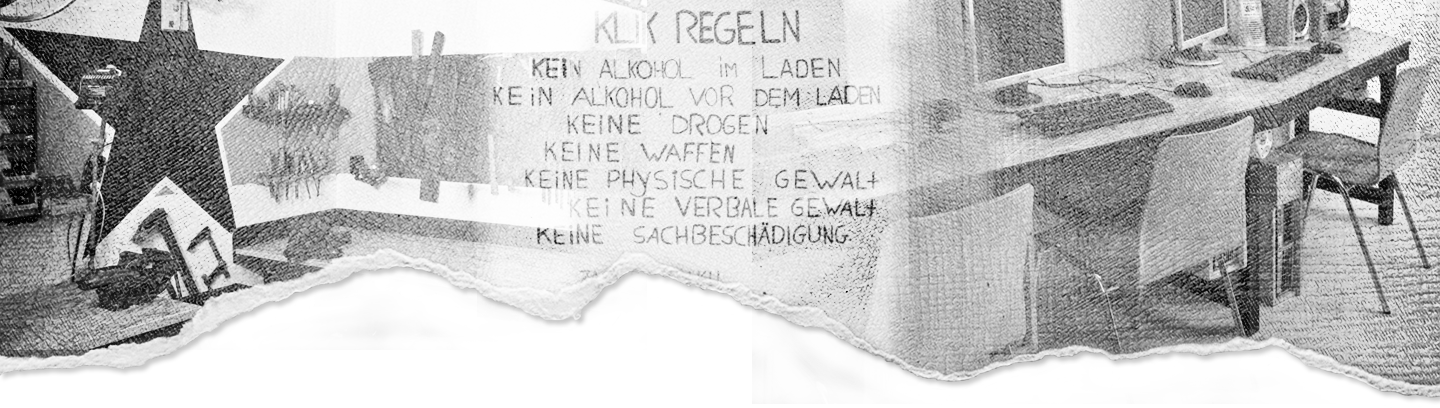 KLIK REGELN
KEIN ALKOHOL IM LADEN
KEIN ALKOHOL VOR DEM LADEN
KEINE DROGEN
KEINE WAFFEN
KEINE PHYSISCHE GEWALT
KEINE VERBALE GEWALT
KEINE SACHBESCHÄDIGUNG